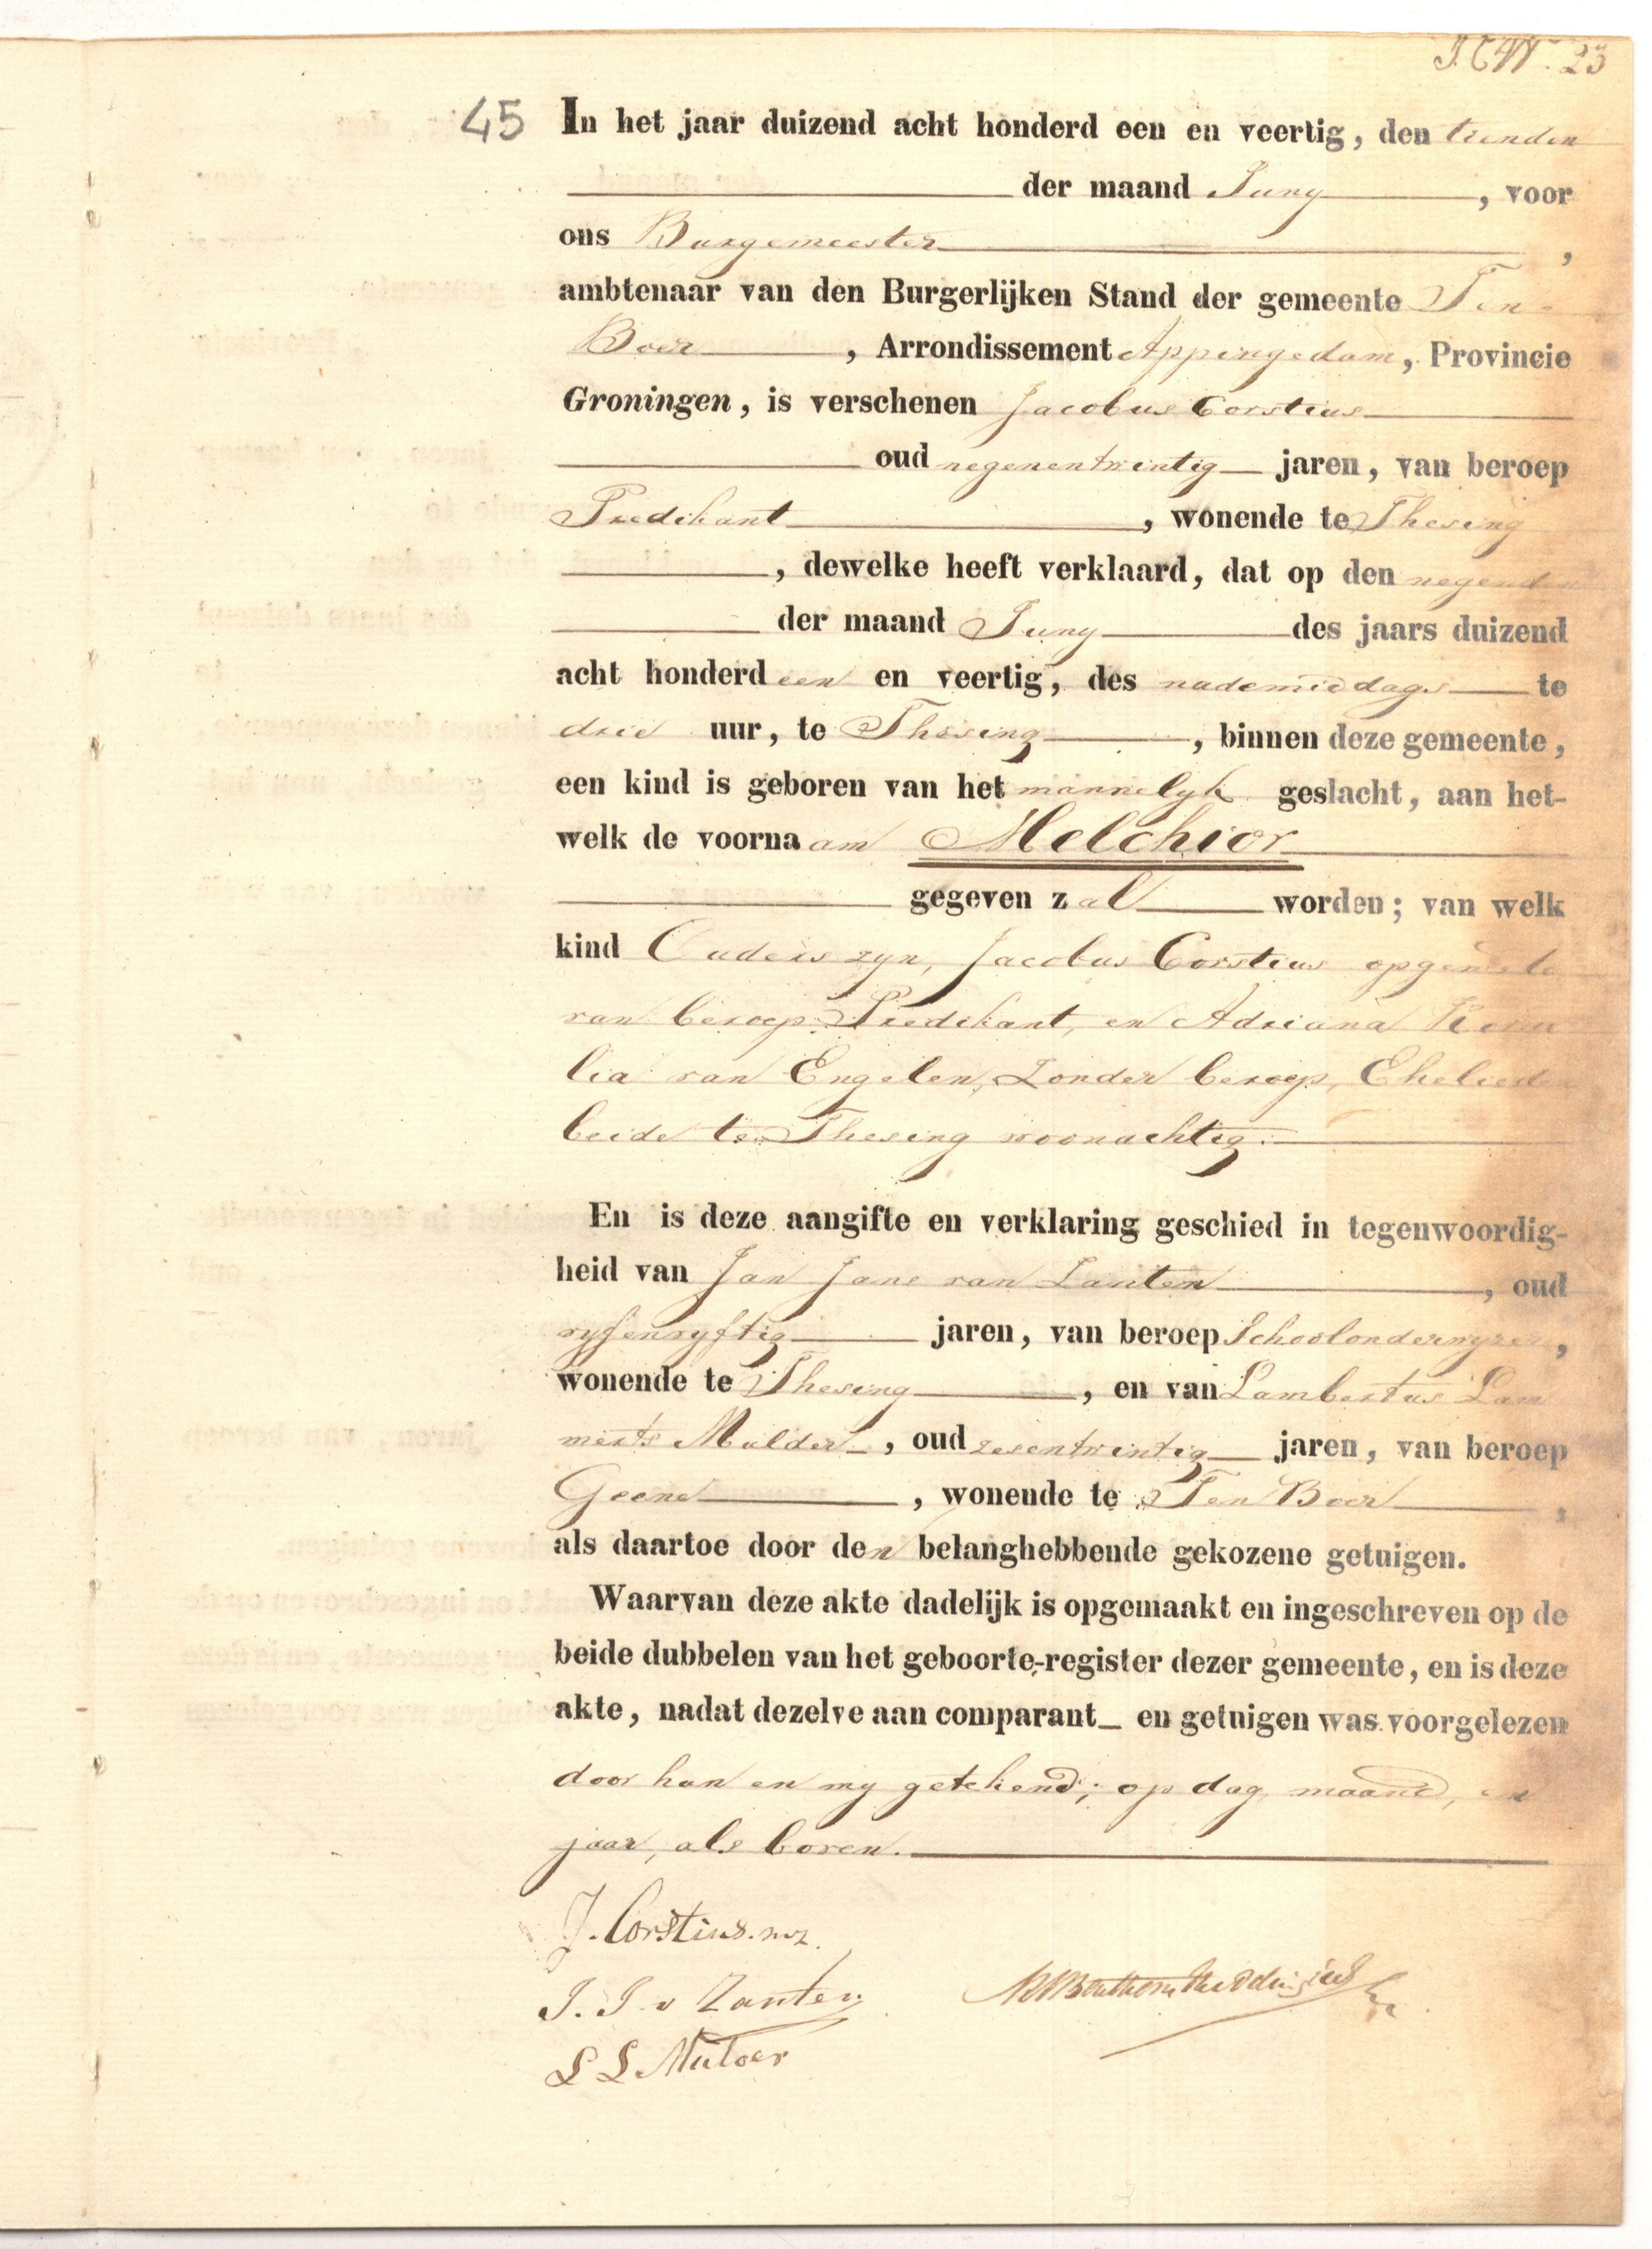 23
45 In het jaar duizend acht honderd een en veertig, den tienden
der maand Juny, voor
ons Burgemeester,
ambtenaar van den Burgerlijken Stand der gemeente Ten-
Boer, Arrondissement Appingedam, Provincie
Groningen, is verschenen Jacobus Corstius
oud negenentwintig jaren, van beroep
Predikant, wonende te Thesing
, dewelke heeft verklaard, dat op den negenden
der maand Juny des jaars duizend
acht honderd een en veertig, des nademiddags te
drie uur, te Thesing, binnen deze gemeente,
een kind is geboren van het mannelyk geslacht, aan het-
welk de voornaam Melchior
gegeven zal worden; van welk
kind Ouders zyn, Jacobus Corstius opgemelde
van beroep Predikant, en Adriana
lia van Engelen, Zonder beroep, Ehelieden
beide te Thesing woonachtig.
En is deze aangifte en verklaring geschied in tegenwoordig-
heid van Jan Jans van Zanten, oud
vyfenvyftig jaren, van beroep Schoolonderwyzer,
wonende te Thesing, en van Lambertus Lam
merts Mulder, oud zesentwintig jaren, van beroep
Geene, wonende te Ten Boer,
als daartoe door den belanghebbende gekozene getuigen.
Waarvan deze akte dadelijk is opgemaakt en ingeschreven op de
beide dubbelen van het geboorte-register dezer gemeente, en is deze
akte, nadat dezelve aan comparant_ en getuigen was voorgelezen
door hun en my getekend; op dag, maand, en
jaar, als boven.
J. Corstius. mz.
J. J. v Zanten
L L Mulder